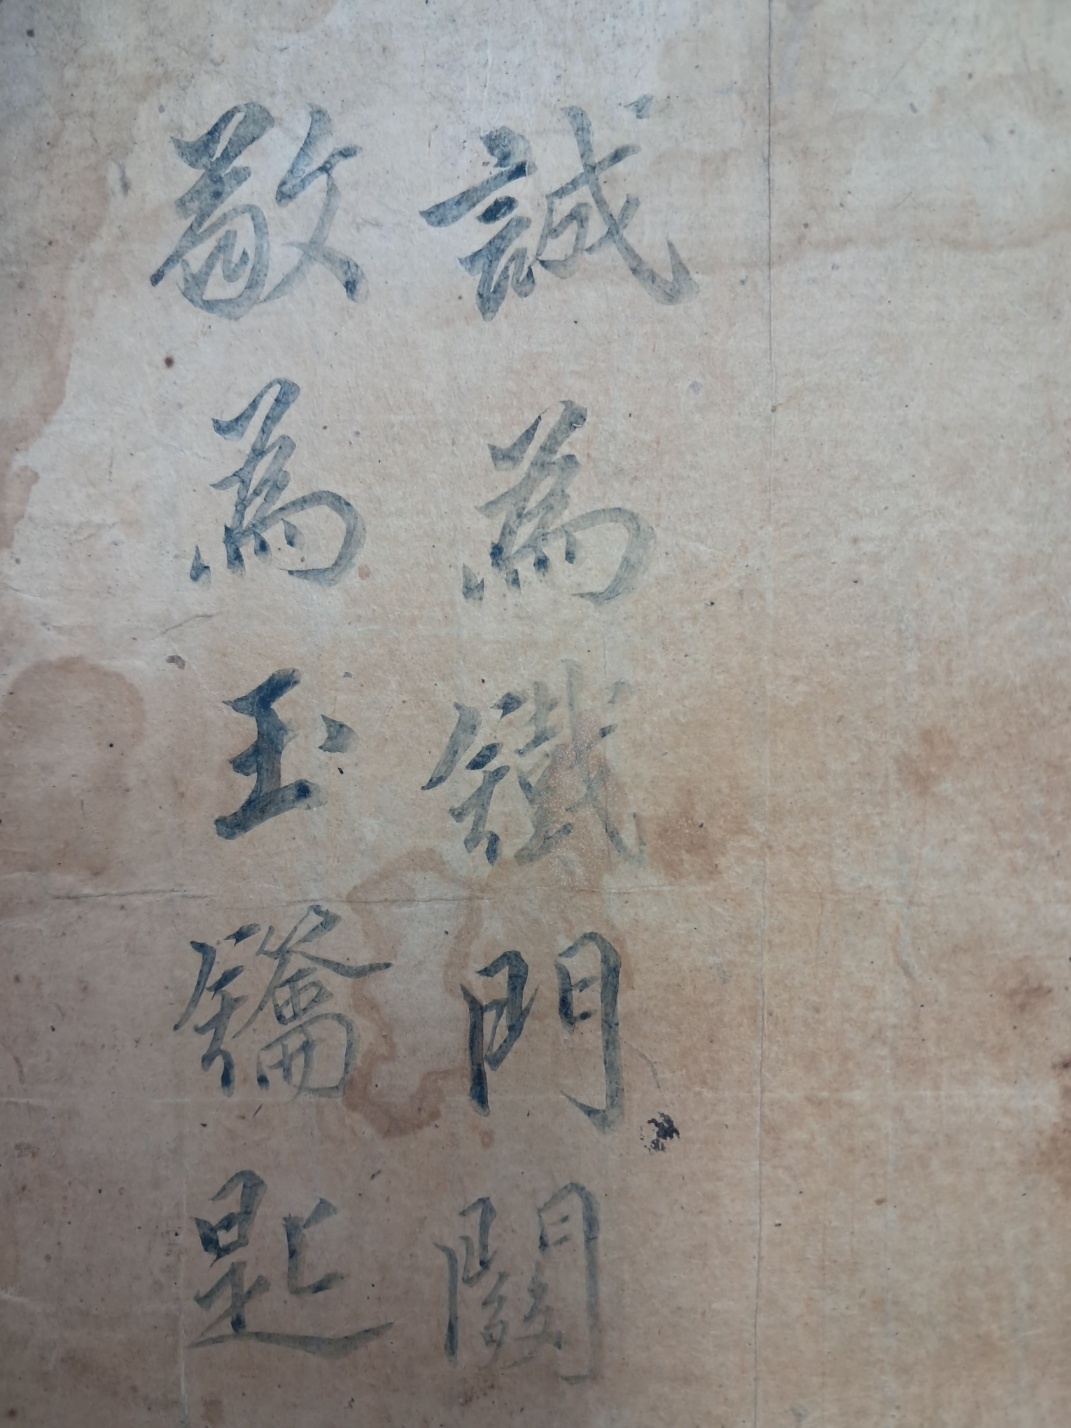 誠為鐵門關
敬為玉鑰匙